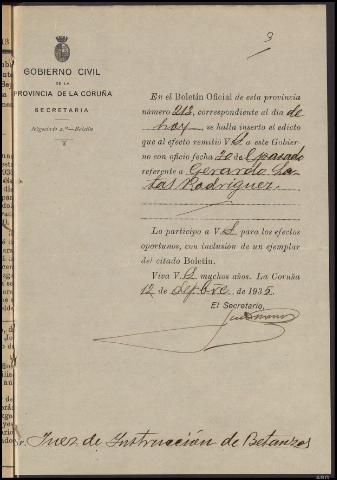 3
GOBIERNO CIVIL
DE LA
PROVINCIA DE LA CORUÑA
SECRETARIA
Negociado 2.º—Boletín
En el Boletín Oficial de esta provincia
número 213, correspondiente al día de
hoy se halla inserto el edicto
que al efecto remitió V.S. a este Gobier-
no con oficio fecha 30 del pasado
referente a Gerardo
Rodríguez.
Lo participo a V.S. para los efectos
oportunos, con inclusión de un ejemplar
del citado Boletín.
Viva V.S. muchos años. La Coruña
12 de Sepbre de 1935
El Secretario,
Sr. Juez de Instrucción de Betanzos